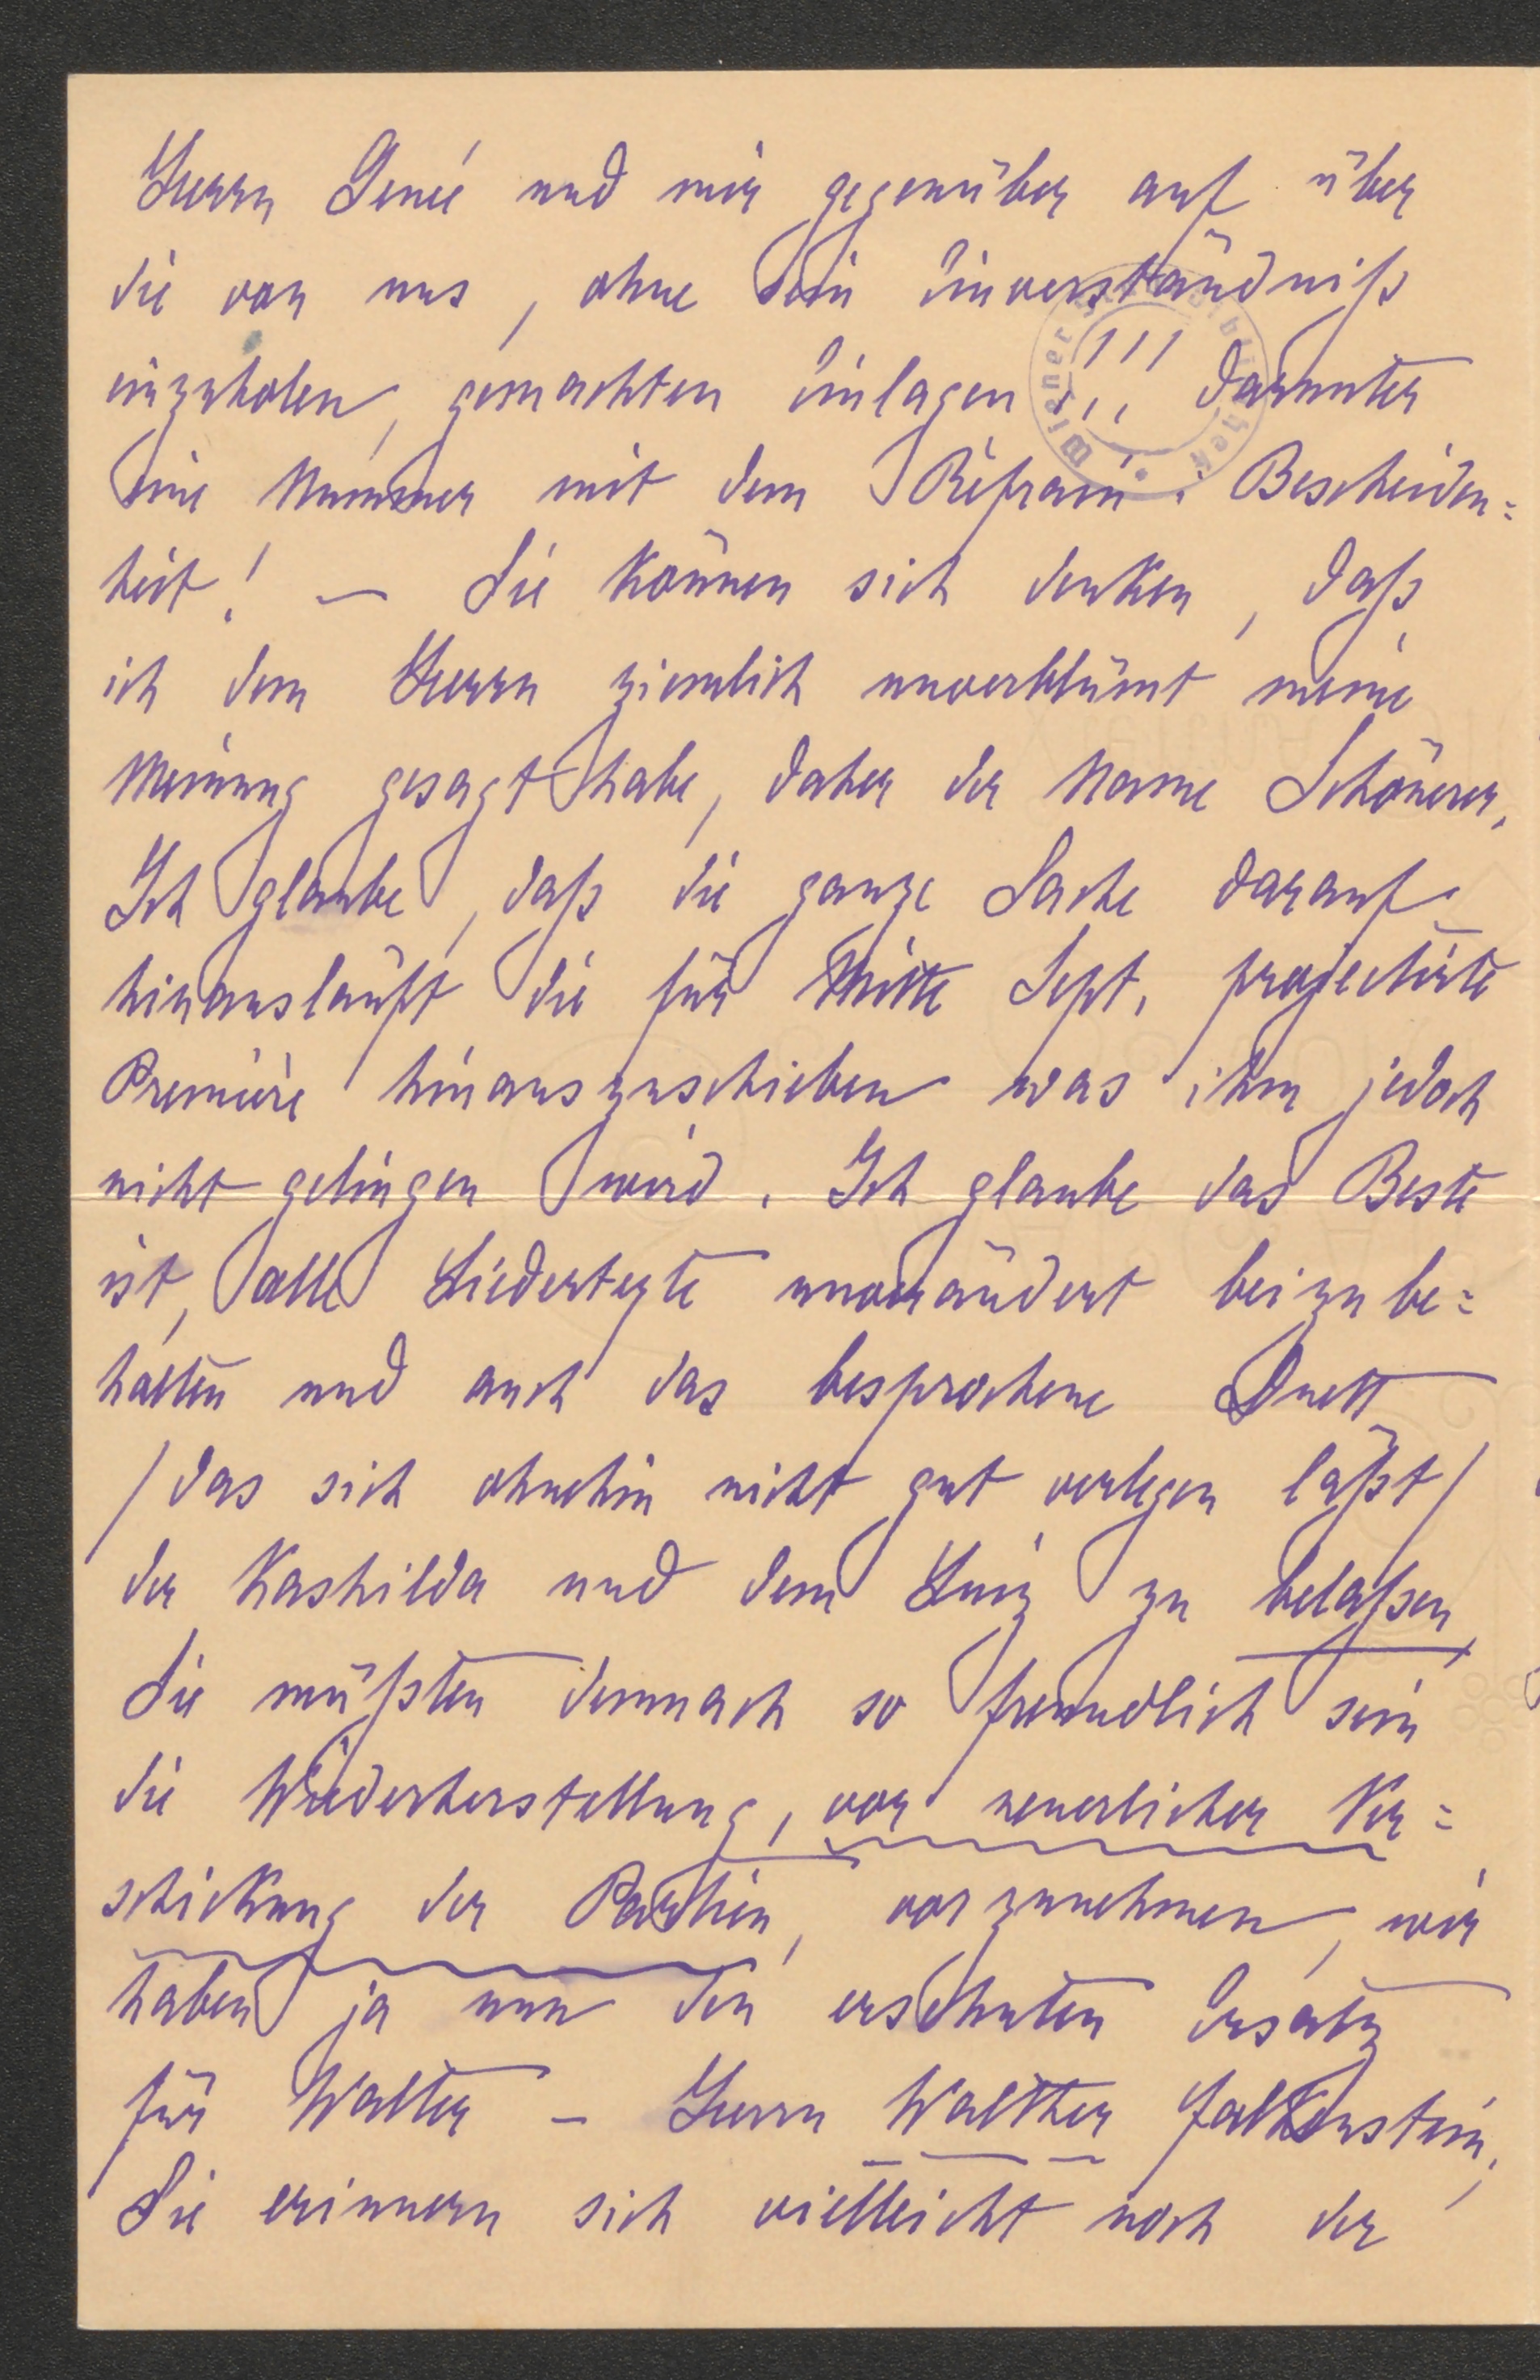 Herrn Genée und mir gegenüber auf über
die von uns, ohne sein Einverständniß
einzuholen, gemachten Einlagen !!! darunter
eine Nummer mit dem Refrain: Bescheiden=
heit! — Sie können sich denken, daß
ich dem Herrn ziemlich unverblümt meine
Meinung gesagt habe, daher der Name Schönerer.
Ich glaube, daß die ganze Sache darauf
hinausläuft die für Mitte Sept. projectirte
Première hinauszuschieben was ihm jedoch
nicht gelingen wird. Ich glaube das Beste
ist, alle Liedertexte unverändert beizube=
halten und auch das besprochene Duett
/das sich ohnehin nicht gut verlegen läßt/
der Kashilda und dem Hinz zu belaßen
Sie müßten demnach so freundlich sein
die Wiederherstellung, vor neuerlicher Ver=
schickung der Partien, vorzunehmen, wir
haben ja nun den ersehnten Ersatz
für Walter – Herrn Walther Falkenstein,
Sie erinnern sich vielleicht noch der
Wiener Stadtbibliothek